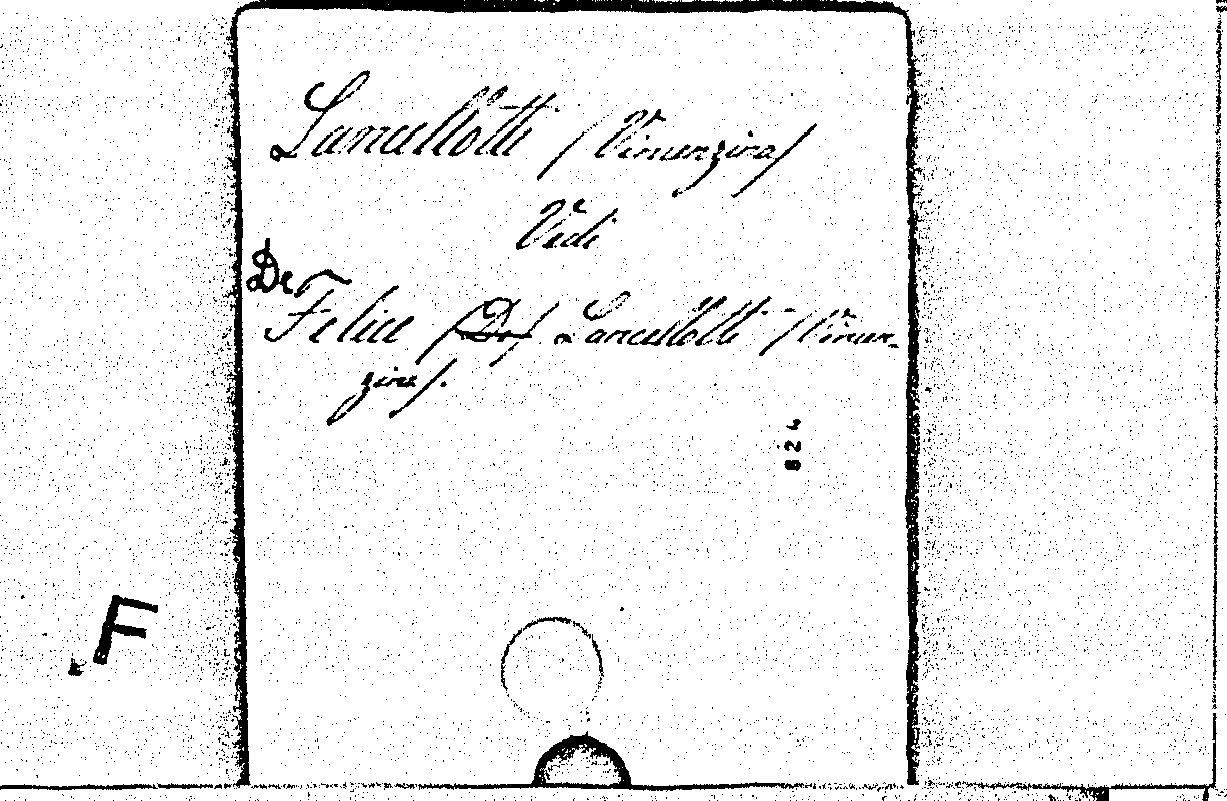 Lancellotti (Vincenzina)
Vedi
De
Felice (De) Lancellotti (Vincen-
zina).
824
F